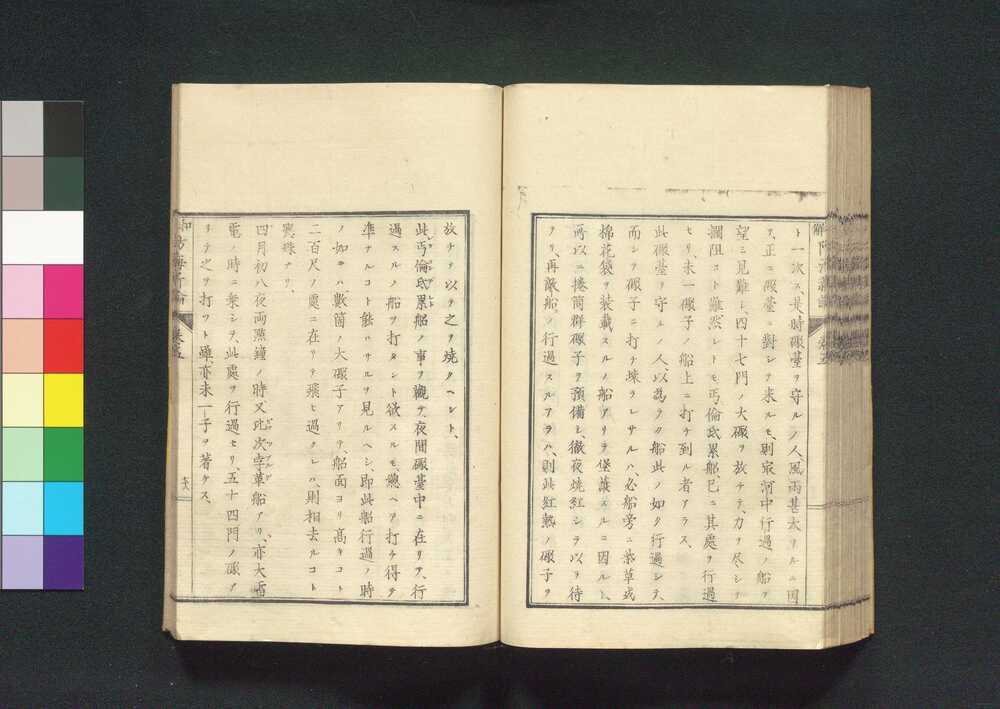 ト一次ス、是時礟臺ヲ守ルノ人、風雨甚大ナルニ因
テ、正ニ礟臺ニ對シテ来ルモ、則家河中行過ノ船ヲ
望ミ見難シ、四十七門ノ大礟ヲ放チテ、力ヲ尽シテ
攔阻スト雖然レトモ、丐倫氐累船、已ニ其處ヲ行過
セリ、未一礟子ノ船上ニ打チ到ル者アラス、
此礟臺ヲ守ルノ人、以爲ク船此ノ如ク行過シテ、
而シテ礟子ニ打チ壊ラレサルハ、必船旁ニ柴草或
棉花袋ヲ装載スルノ船アリテ保護スルニ因ルト、
所以ニ捲筒群礟子ヲ預備シ、徹夜焼紅シテ以ヲ待
テリ、再敵船ノ行過スルアラハ、則此紅熱ノ礟子ヲ
放チテ以テ之ヲ焼クヘシト、
此丐倫氐累船ノ事ヲ觀テ、夜間礟臺中ニ在リテ、行
過スルノ船ヲ打タント欲スルモ、總ヘテ打チ得テ
準ナルコト能ハサルヲ見ルヘシ、即此船行過ノ時
ノ如キハ數箇ノ大礟子アリテ、船面ヨリ高キコト
二百尺ノ處ニ在リテ飛ヒ過クレハ、則相去ルコト
寔殊ナリ、
四月初八夜両點鐘ノ時、又比次孛革船アリ、亦大雷
電ノ時ニ乗シテ、此處ヲ行過セリ、五十四門ノ礟ア
リテ之ヲ打ツト雖、亦未一子ヲ著ケス、